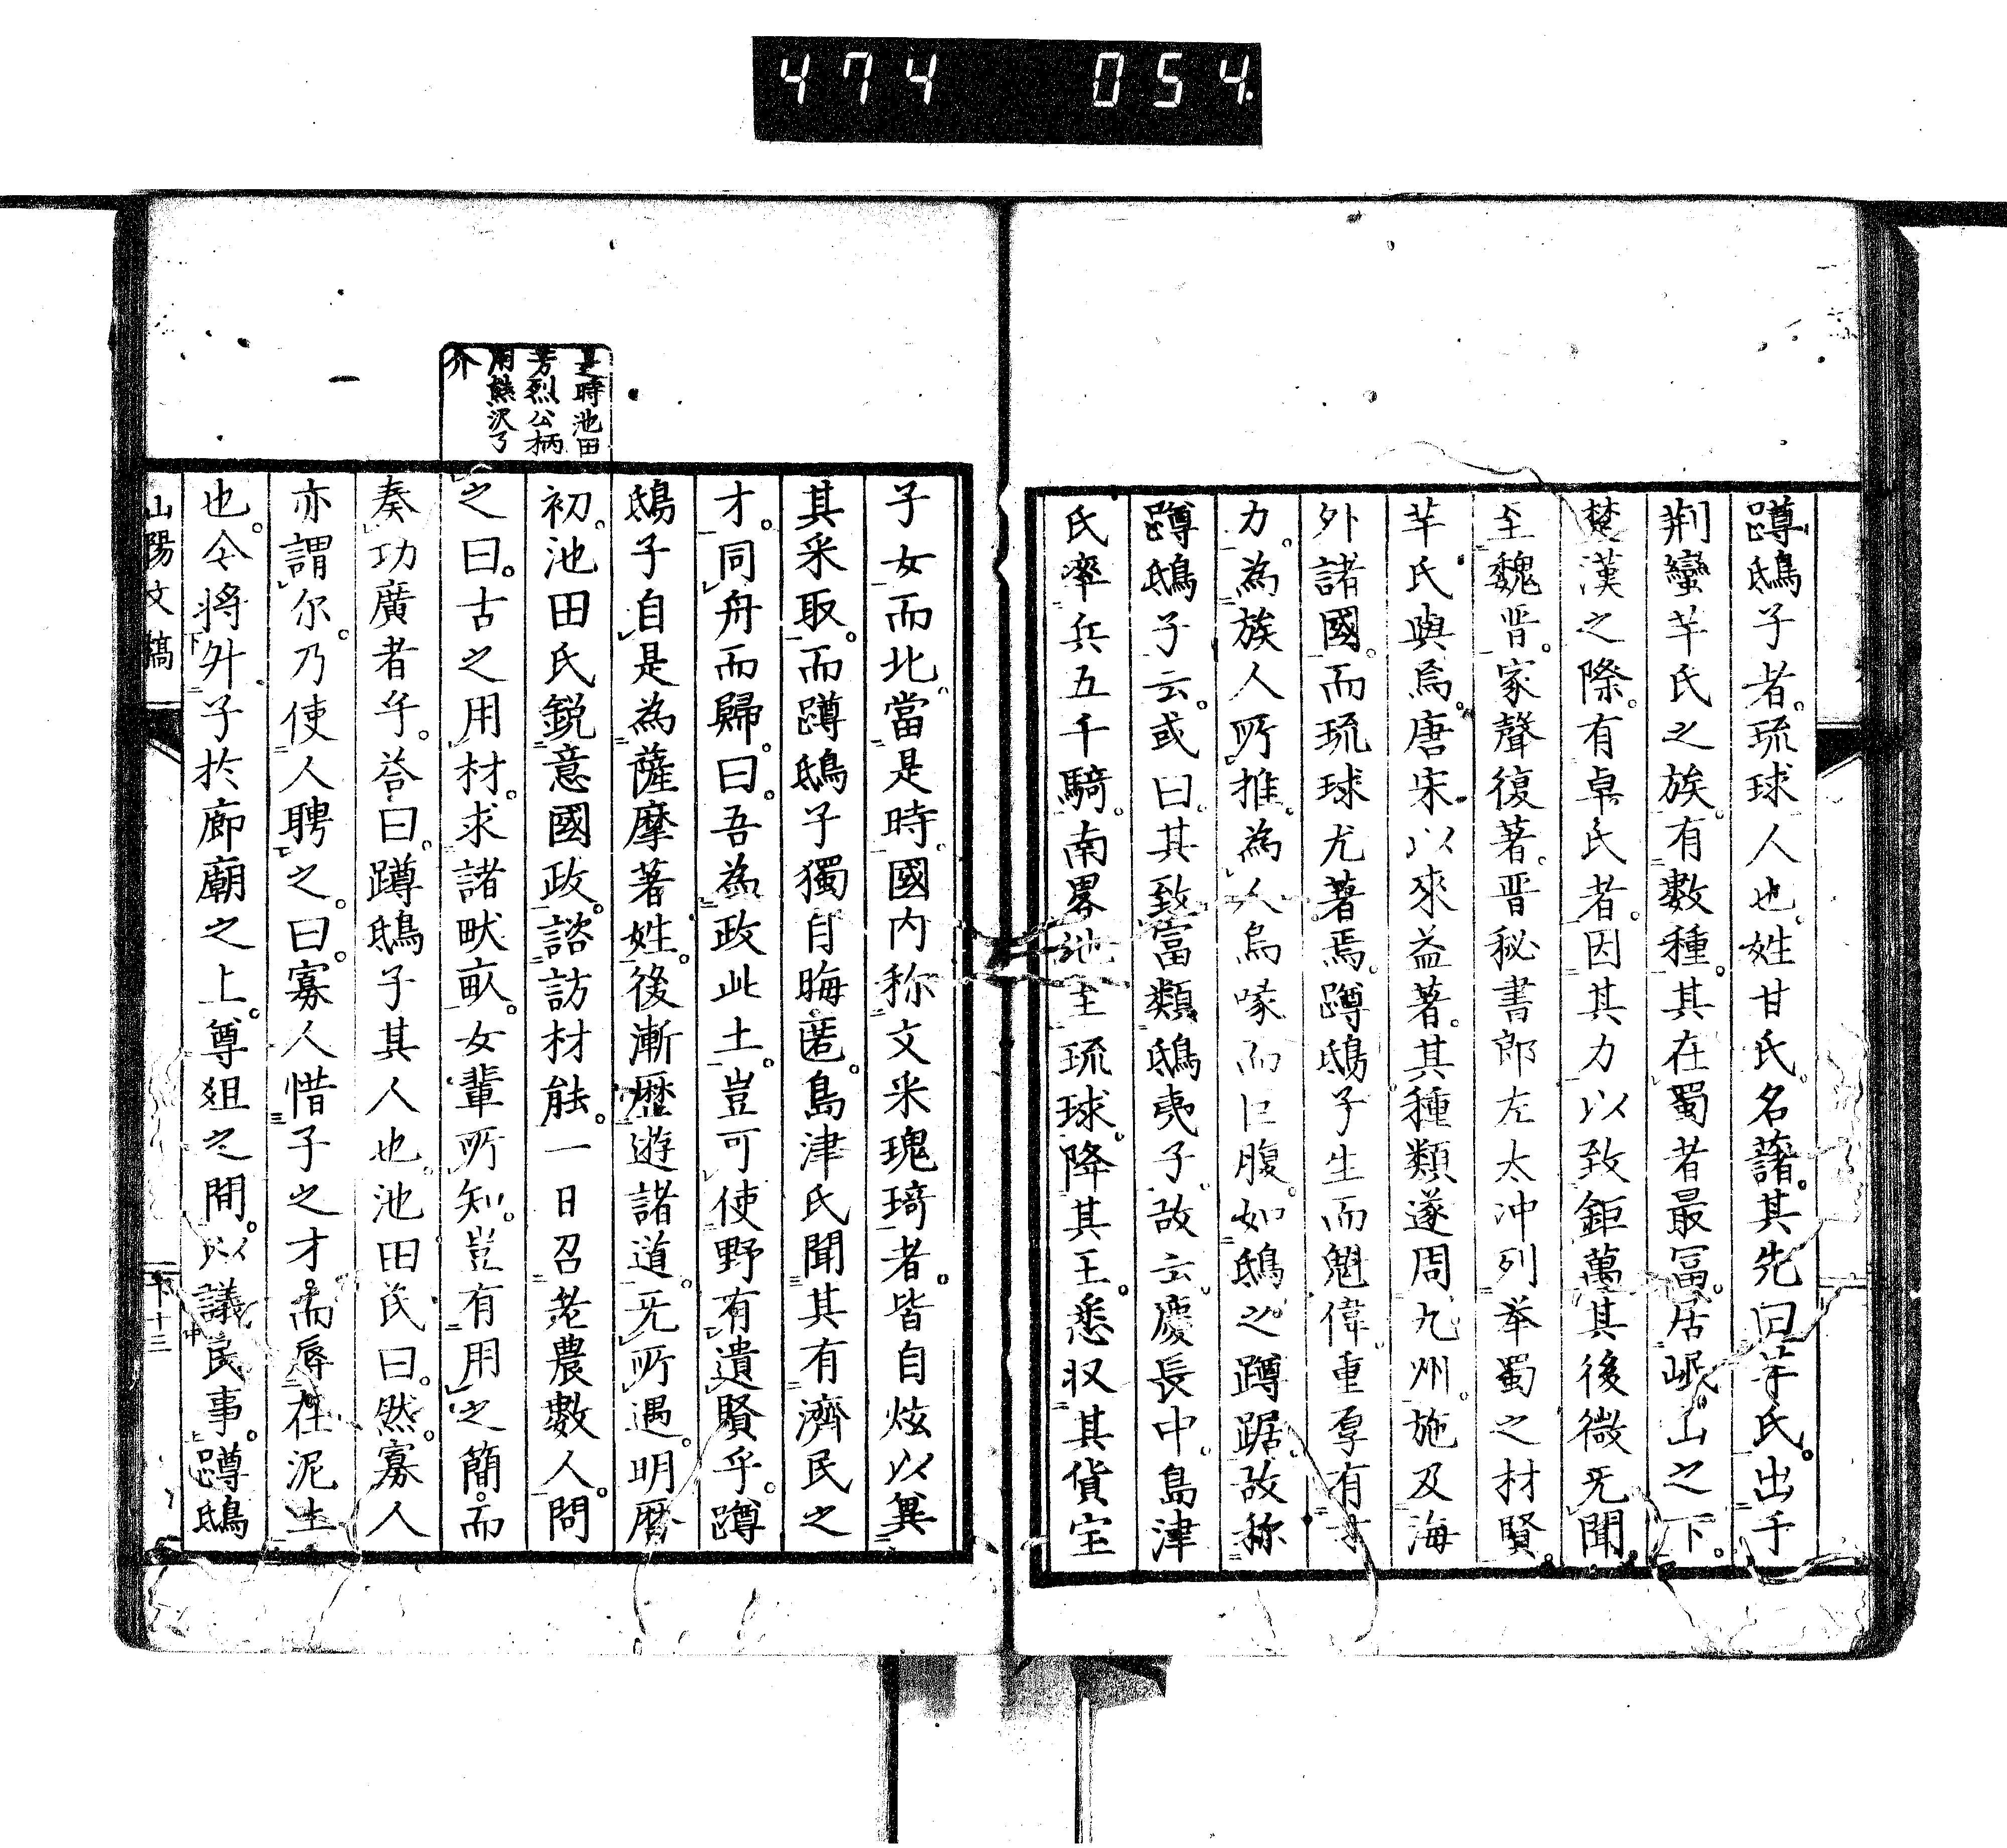 474 054
蹲鴟子者。琉球人也。姓甘氏。名藷。其先曰芋氏。出于
荆蠻芊氏之族。有數種。其在蜀者最冨。居岷山之下。
楚漢之際。有卓氏者。因其力以致鉅萬其後微旡聞。
至魏晋。家聲復著。晋秘書郎左太冲列举蜀之材賢。
芊氏與焉。唐宋以來益著。其種類遂周九州。施及海
外諸國。而琉球尤著焉。蹲鴟子生而魁偉。重厚有才
力。為族人所推。為人烏喙而巨腹。如鴟之蹲踞。故称
蹲鴟子云。或曰。其致富類鴟夷子。故云。慶長中。島津
氏率兵五千騎。南畧地至琉球。降其王。悉収其貨宝
子女而北。當是時。國内称文米瑰琦者。皆自炫以異
其采取。而蹲鴟子獨自晦匿。島津氏聞其有濟民之
才。同舟而歸。曰。吾為政此土。豈可使野有遺賢乎。蹲
鴟子自是為薩摩著姓。後漸歴遊諸道。旡所遇。明暦
初。池田氏鋭意國政。諮訪材能。一日召老農數人。問
之曰。古之用材。求諸畎畝。女輩所知。豈有用之簡。而
奏功廣者乎。荅曰。蹲鴟子其人也。池田氏曰。然。寡人
亦謂尔。乃使人聘之。曰。寡人惜子之才。而辱在泥土
也。今將升子於廊廟之上。尊俎之間。以議民事。蹲鴟
是時池田
芳烈公柄
用熊沢了
介
山陽文稿 下 十三